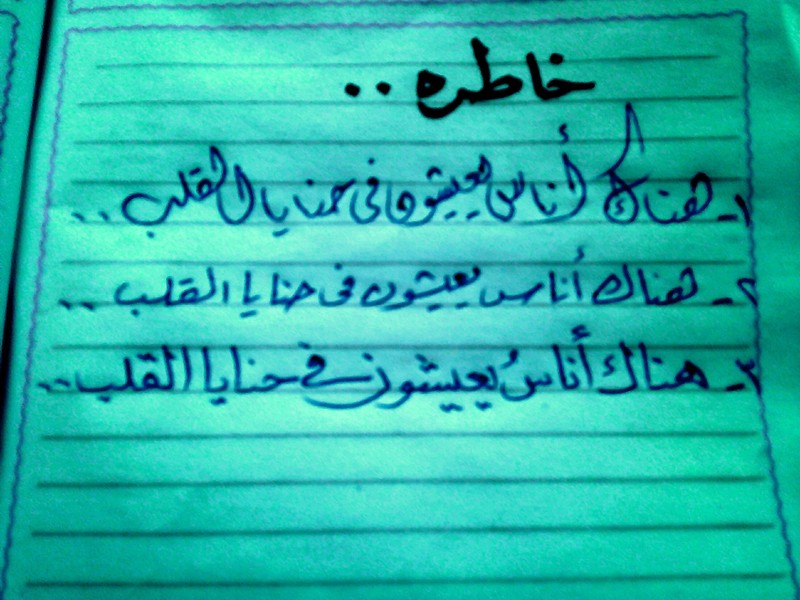 خاطره ..
١- هناك أناس يعيشون في حنايا القلب ..
٢- هناك أناس يعيشون في حنايا القلب ..
٣- هناك أناسُ يعيشون في حنايا القلب ..